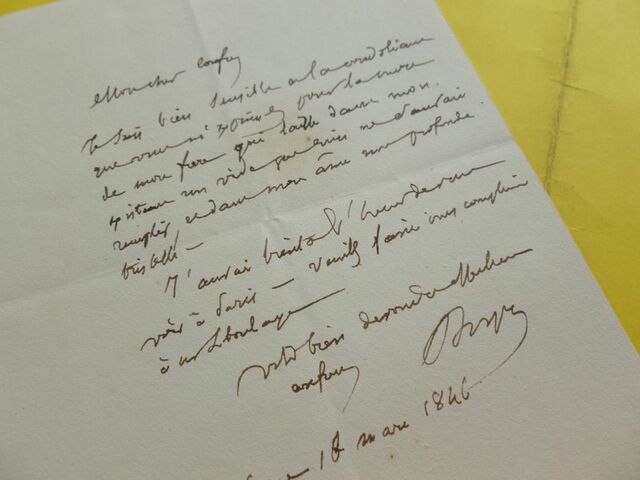 Mon cher confrère
Je suis bien sensible à la condoléance
que vous m'exprimez pour la mort
de mon frère qui laisse dans mon
existence un vide que rien ne saurait
remplir, et dans mon âme une profonde
tristesse —
J'aurai bientôt l'honneur de vous
voir à Paris — veuillez faire mes compliments
à
votre bien dévoué et affectionné
confrère
18 mars 1846